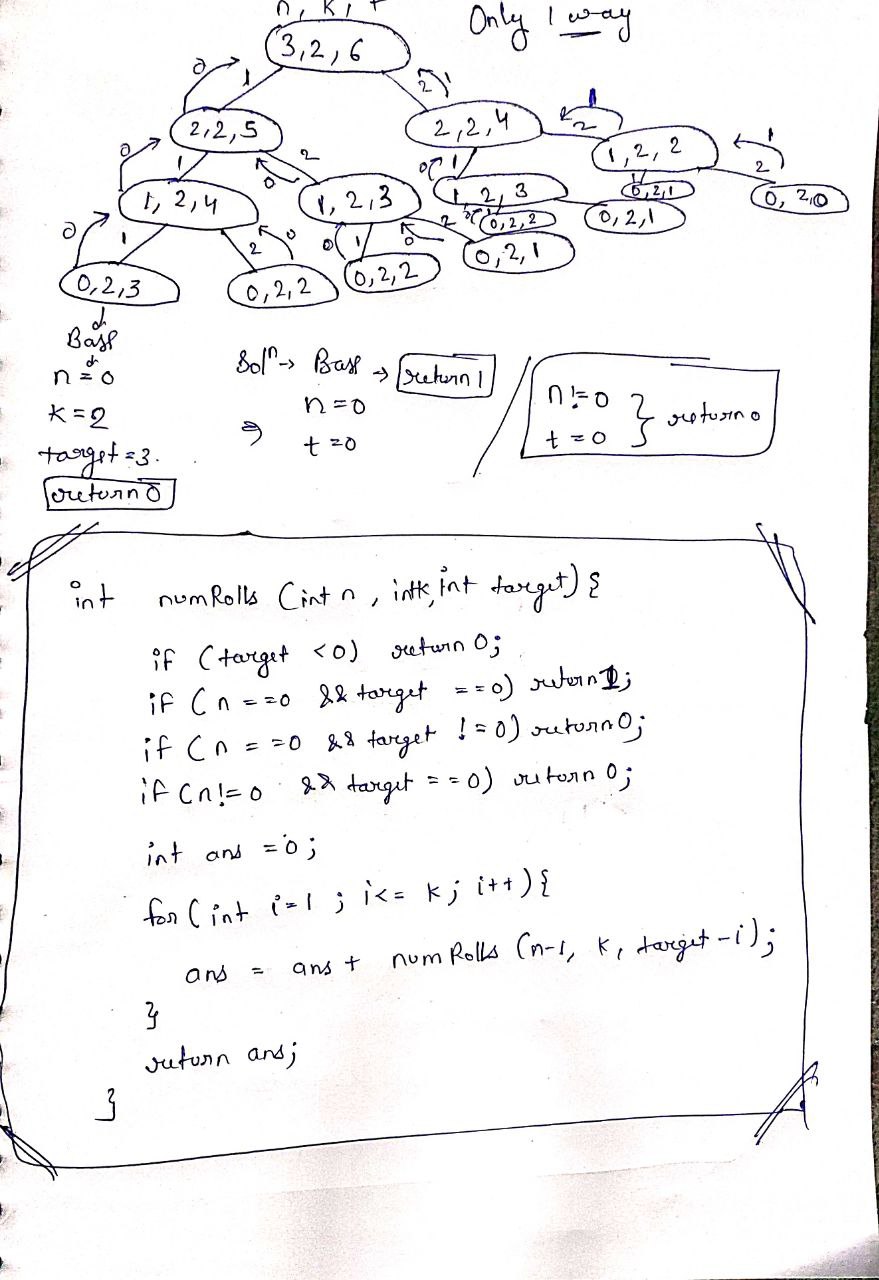 n, k, t
Only 1 way
3,2,6
0 1 2 1
2,2,5 2,2,4 1
2
0 1 2 0 0 1 1,2,2 1 2
1,2,4 1,2,3 1,2,3 0,2,1 0,2,0
0 1 2 0 0 1 0 2 0,2,2 0,2,1
0,2,3 0,2,2 0,2,2 0,2,1
Base
n=0
k=2
target=3.
return 0
Solⁿ → Base → return 1
⇒ n=0
t=0
n!=0
t=0 } return 0
int numRolls (int n, int k, int target) {
if (target <0) return 0;
if (n ==0 && target ==0) return 1;
if (n ==0 && target !=0) return 0;
if (n!=0 && target ==0) return 0;
int ans =0;
for (int i=1; i<= k; i++) {
ans = ans + numRolls (n-1, k, target-i);
}
return ans;
}